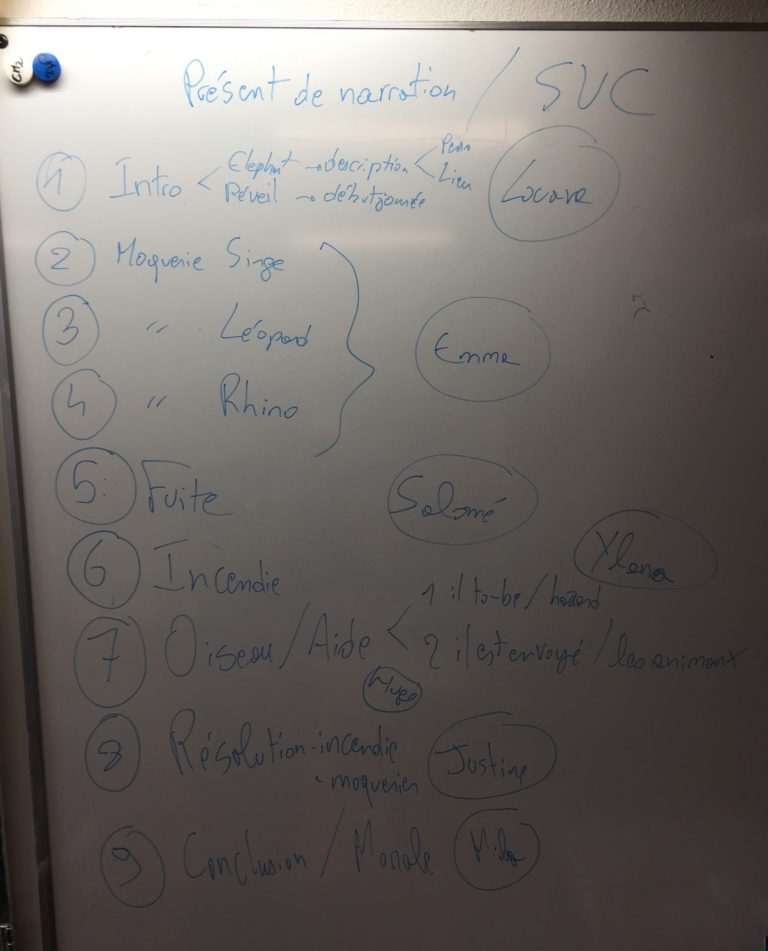 CM2
Présent de narration / SVC
1 Intro < Elephnt → description < Perso
Lieu
Réveil → début journée
2 Moquerie Singe
3 " Léopard
4 " Rhino
Emma
5 Fuite Salomé
6 Incendie Ylena
7 Oiseau / Aide < 1 il tombe / hasard
2 il est envoyé / les animaux
Hugo
8 Résolution - incendie
- moqueries
Justine
9 Conclusion / Morale